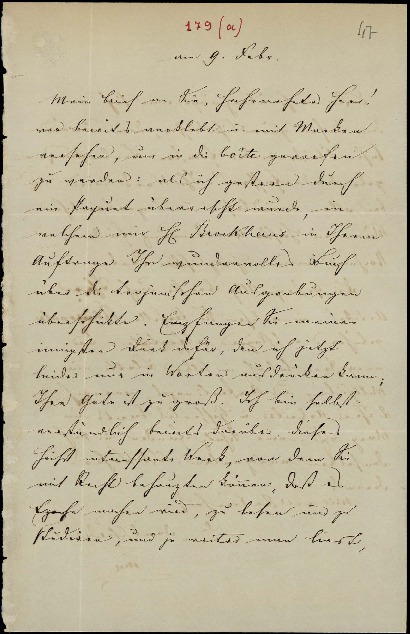 179 (a)
417
am 9. Febr.
Mein Buch an Sie, hochverehrter Herr!
war bereits verklebt u. mit Marken
versehen, um in die boîte geworfen
zu werden: als ich gestern durch
ein Paquet überrascht wurde, in
welchem mir H. Brockhaus in Ihrem
Auftrage Ihr wundervolles Buch
über die trojanischen Ausgrabungen
überschickte. Empfangen Sie meinen
innigsten Dank dafür, den ich jetzt
leider nur in Worten ausdrücken kann;
Ihre Güte ist zu groß. Ich bin selbst-
verständlich bereits darüber dieses
höchst interessante Werk, von dem Sie
mit Recht behaupten können, daß es
Epoche machen wird, zu lesen und zu
studiren, und je weiter man liest,